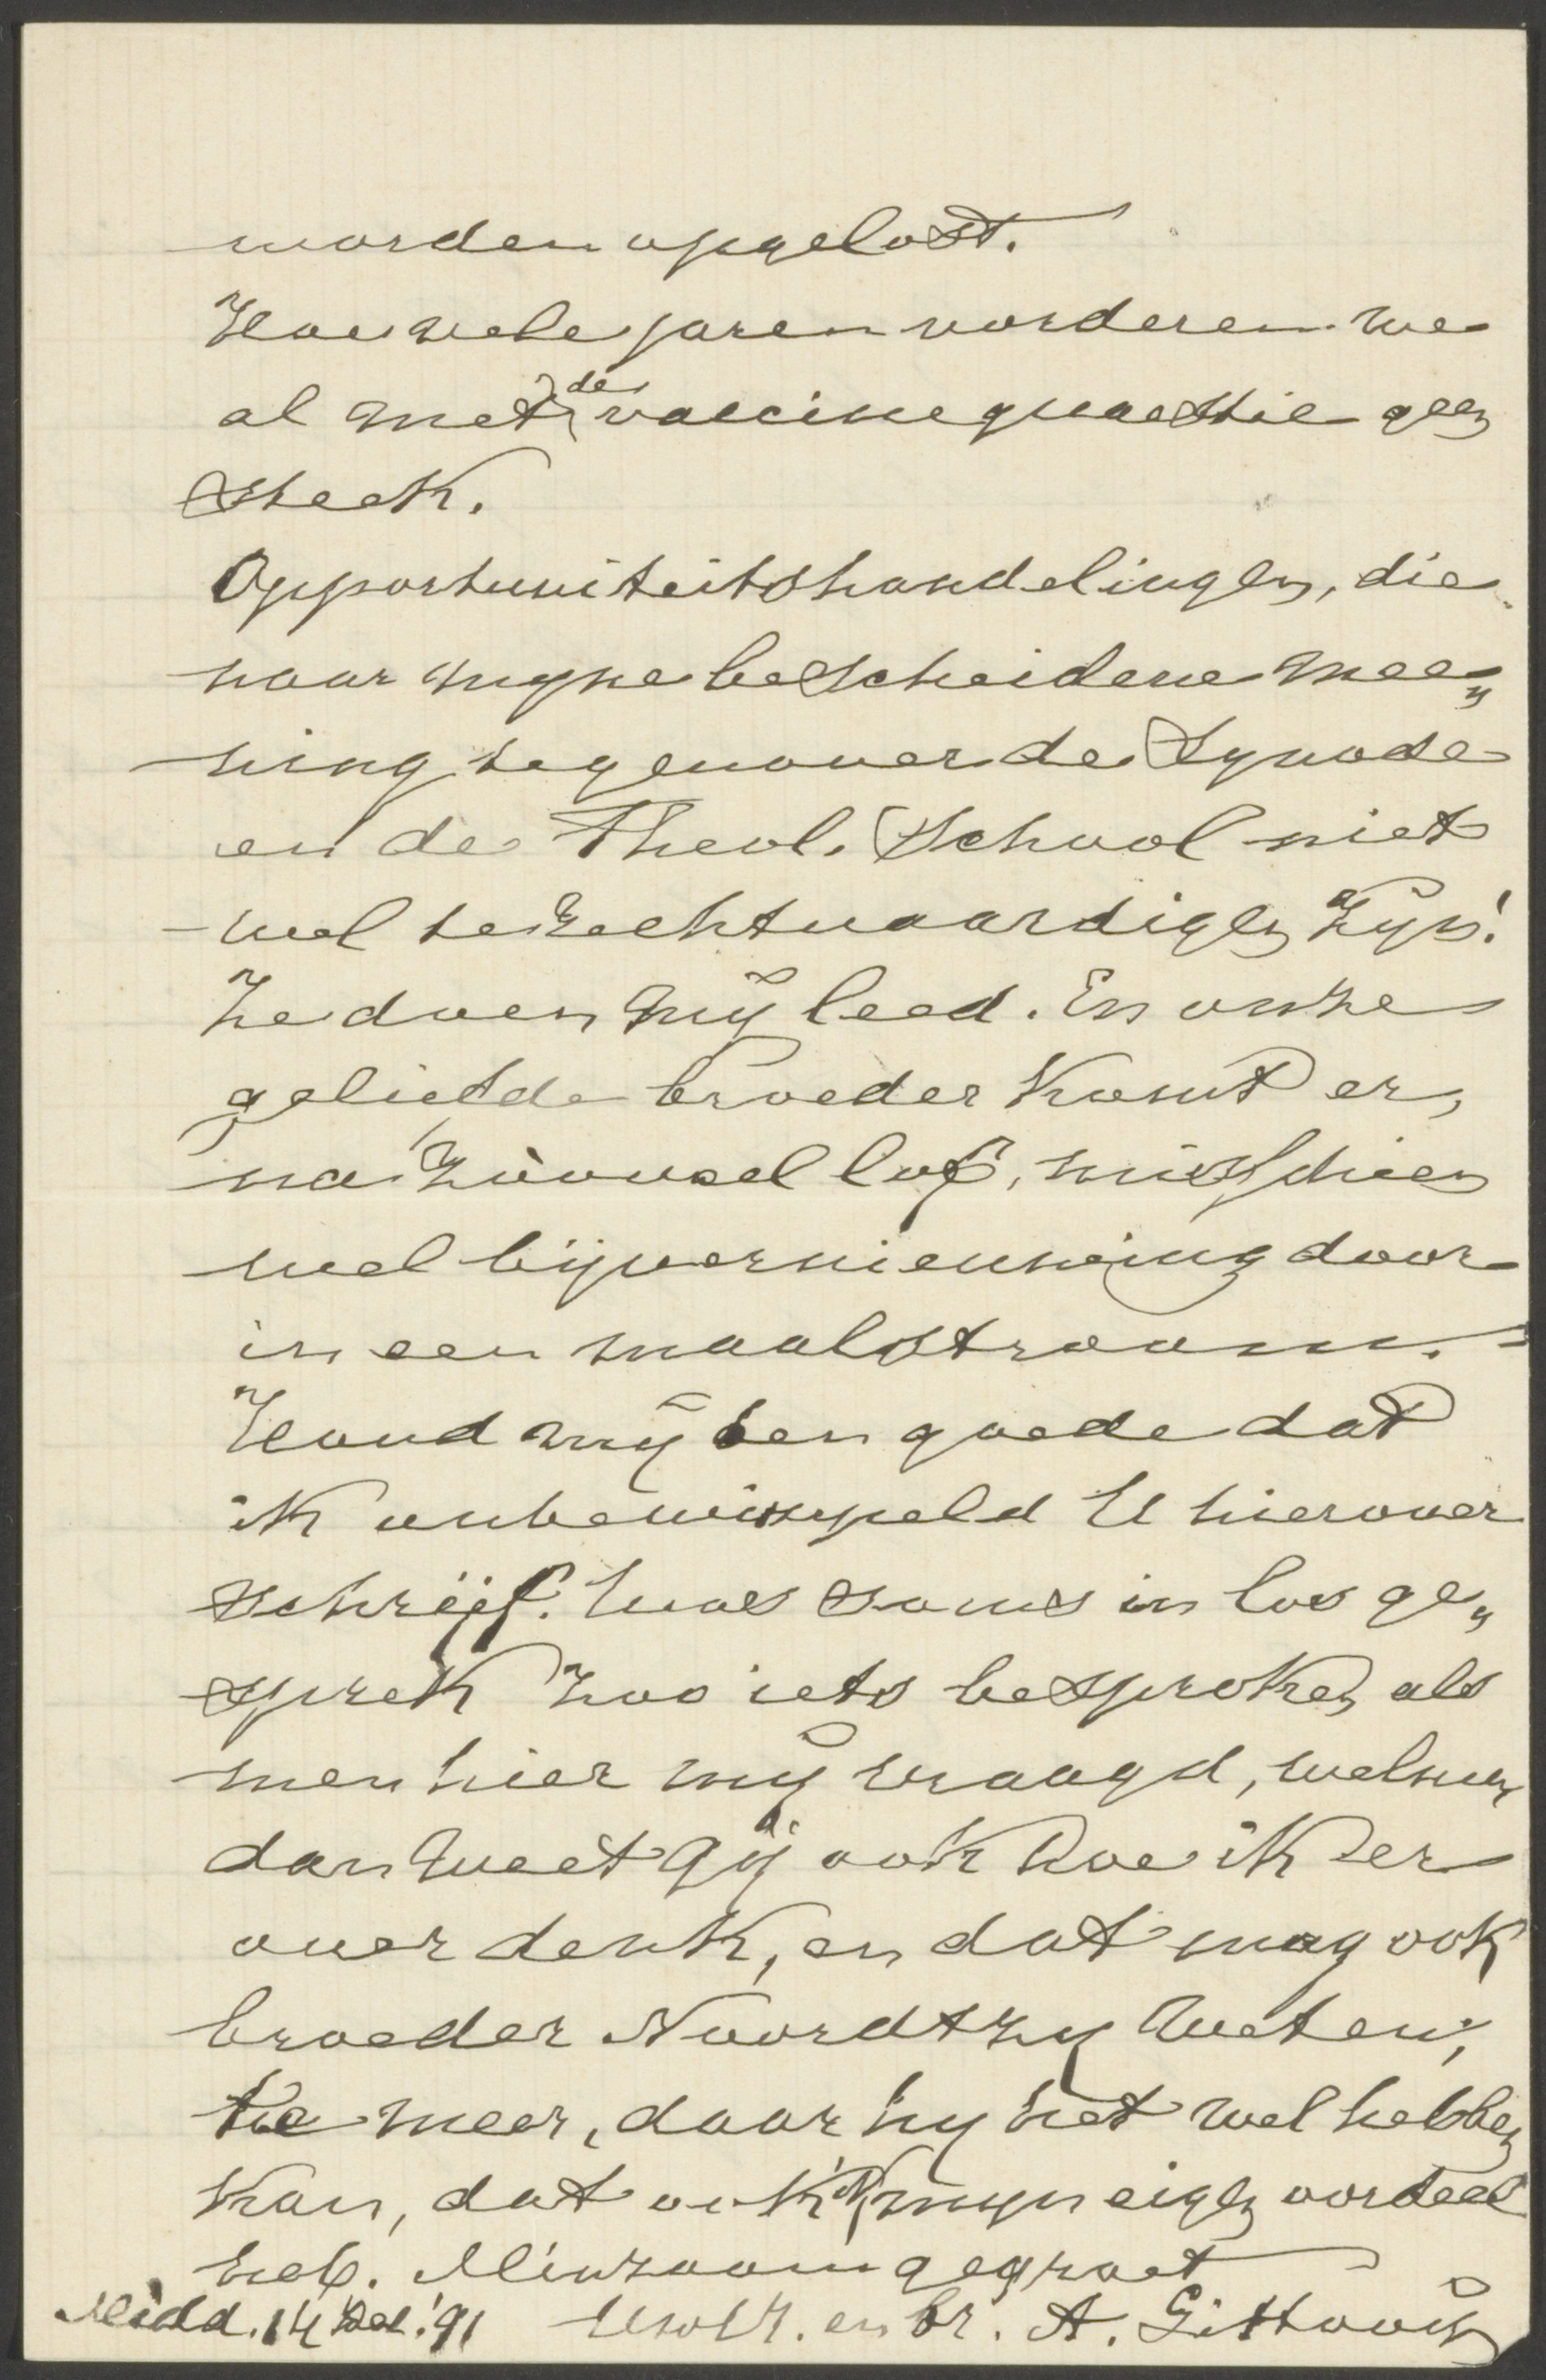 worden opgelost.
Hoevele jaren vorderen we
al met de vaccinequaestie geen
steek.
Opportuniteitshandelingen, die
naar mijne bescheidene mee„
ning tegenover de Synode
en de Theol. School niet
wel te rechtvaardigen zijn!
Ze doen mij leed. En onze
geliefde broeder komt er,
na zooveel lof, misschien
wel bij vernieuwing door
in een maalstroom.
Houd mij ten goede dat
ik onbewimpeld U hierover
schrijf. Was soms in los ge„
sprek zoo iets besproken als
men hier mij vraagd, welnu
dan weet gij ook hoe ik er
over denk, en dat mag ook
broeder Noordtzy weten,
te meer, daar hy het wel hebben
kan, dat ook ik mijn eigen oordeel
heb. Minzaam gegroet
Midd. 14 Dec. '91 Uw vr. en br. A. Littooij